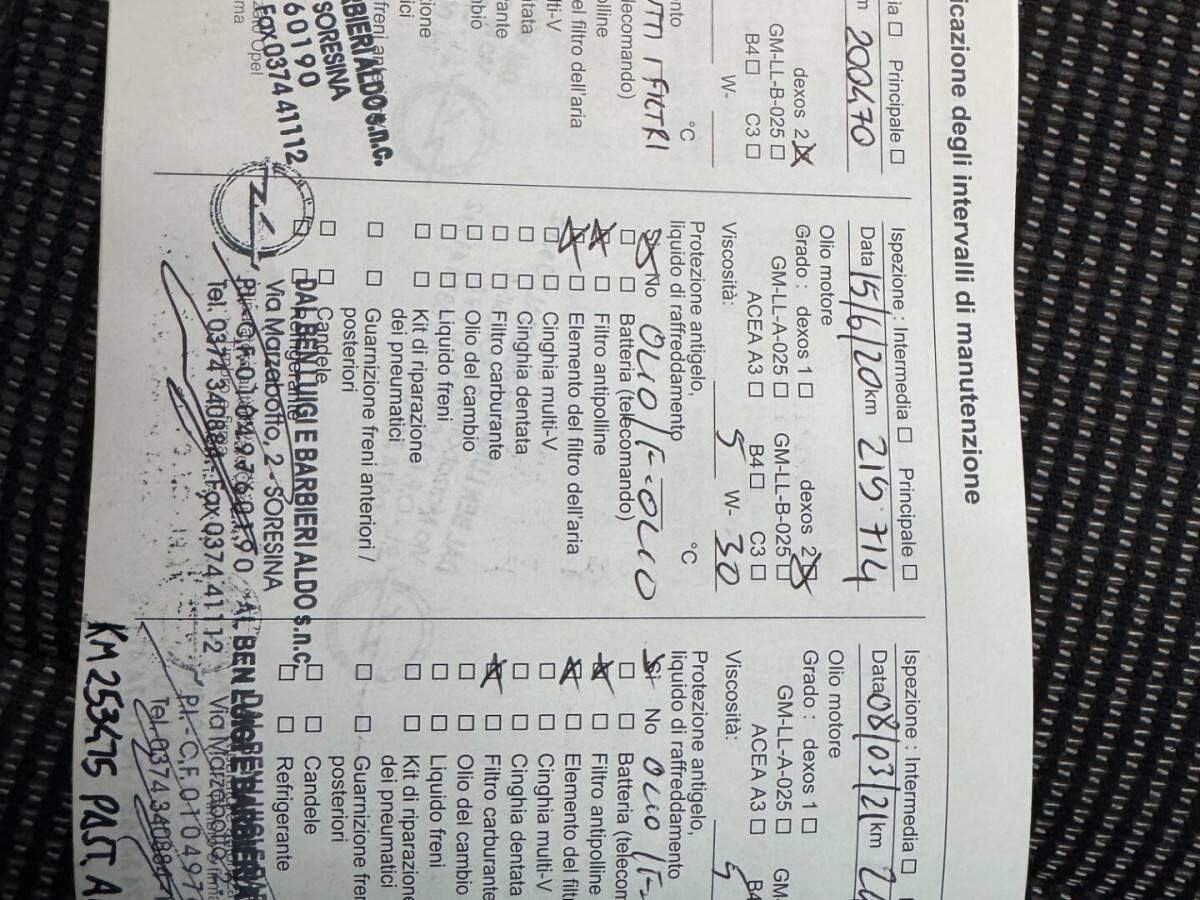 icazione degli intervalli di manutenzione
Principale
200470
dexos 2
GM-LL-B-025
B4 C3
W-
°C
TUTTI I FILTRI
ecomando)
olline
el filtro dell'aria
lti-V
tata
rante
mbio
zione
tici
freni
BARBIERI ALDO s.n.c.
SORESINA
60190
Fax 0374 41112
Opel
Ispezione : Intermedia Principale
Data 15/6/20 km 219 714
Olio motore
Grado : dexos 1 dexos 2
GM-LL-A-025 GM-LL-B-025
ACEA A3 B4 C3
Viscosità: 5 W- 30
Protezione antigelo,
liquido di raffreddamento °C
Sì No OLIO/F-OLIO
Batteria (telecomando)
Filtro antipolline
Elemento del filtro dell'aria
Cinghia multi-V
Cinghia dentata
Filtro carburante
Olio del cambio
Liquido freni
Kit di riparazione
dei pneumatici
Guarnizione freni anteriori /
posteriori
Candele
Refrigerante
DAL BEN LUIGI E BARBIERI ALDO s.n.c.
Via Marzabotto, 2 - SORESINA
Tel. 0374 340884 Fax 0374 41112
Ispezione : Intermedia
Data 08/03/21 km
Olio motore
Grado : dexos 1
GM-LL-A-025 GM-
ACEA A3 B4
Viscosità: 5
Protezione antigelo,
liquido di raffreddamento
Sì No OLIO/F-
Batteria (telecom
Filtro antipolline
Elemento del filt
Cinghia multi-V
Cinghia dentata
Filtro carburante
Olio del cambio
Liquido freni
Kit di riparazione
dei pneumatici
Guarnizione fren
posteriori
Candele
Refrigerante
KM 253475 PAST. A